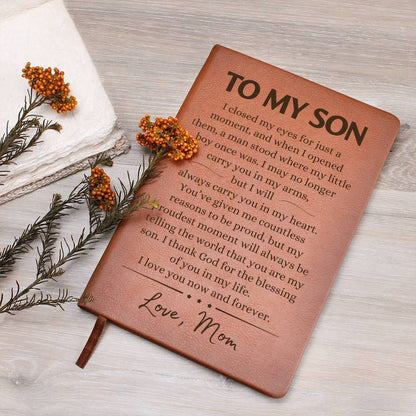 TO MY SON
I closed my eyes for just a
moment, and when I opened
them, a man stood where my little
boy once was, I may no longer
carry you in my arms,
but I will
always carry you in my heart.
You've given me countless
reasons to be proud, but my
proudest moment will always be
telling the world that you are my
son. I thank God for the blessing
of you in my life.
I love you now and forever.
Love, Mom